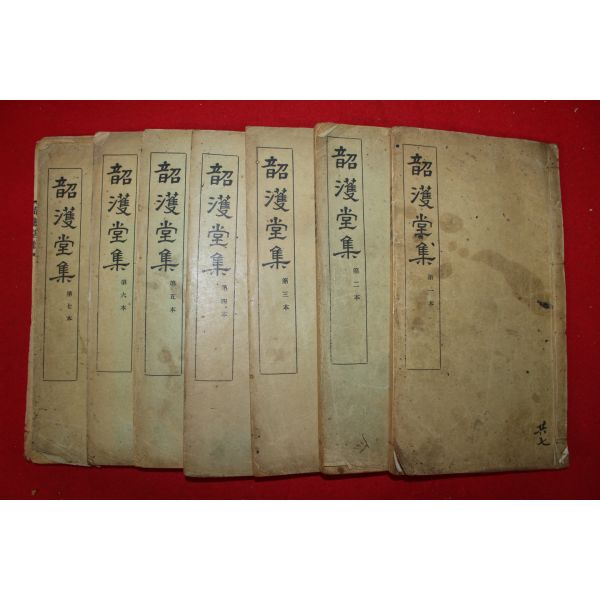 韶濩堂集 第一本
共七
韶濩堂集 第二本
韶濩堂集 第三本
韶濩堂集 第四本
韶濩堂集 第五本
韶濩堂集 第六本
韶濩堂集 第七本